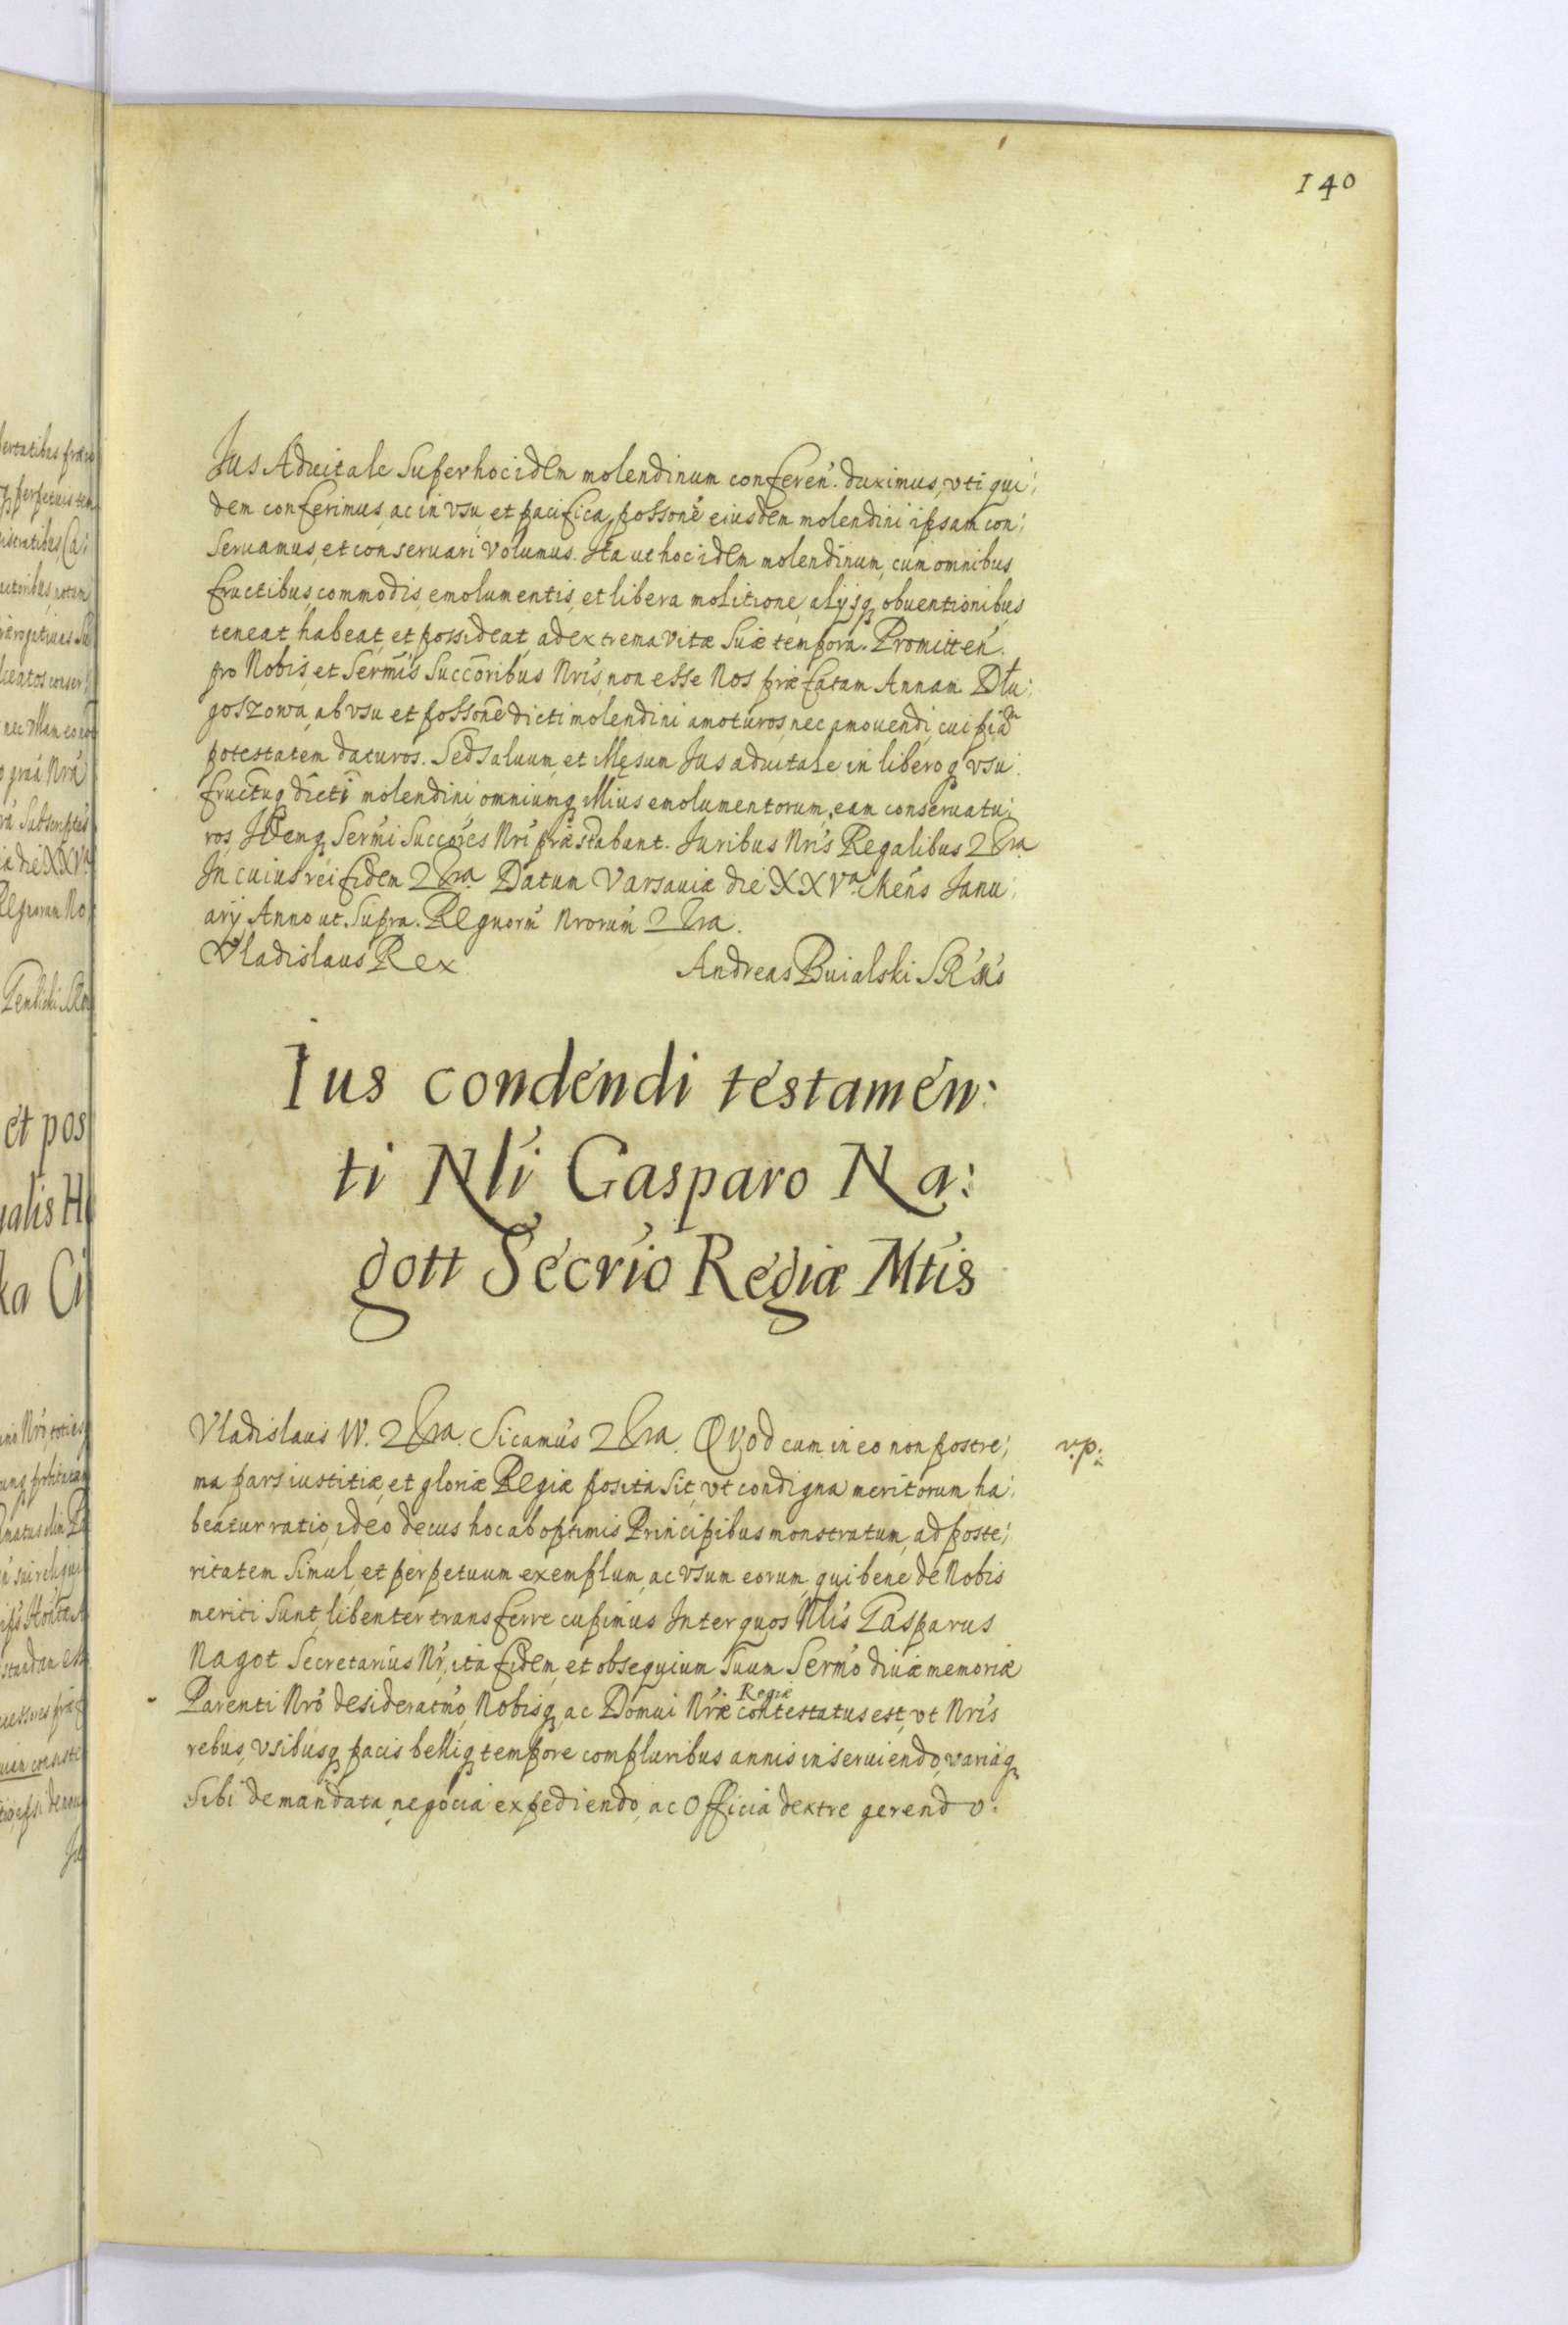 140
Jus Aduitale super hoc idem molendinum conferen. duximus, vti qui:
dem conferimus, ac in vsu, et pacifica possone eiusdem molendini ipsam con:
seruamus, et conseruari volumus. Ita ut hoc idem molendinum, cum omnibus
fructibus, commodis, emolumentis, et libera molitione, alijsq obuentionibus
teneat habeat, et possideat, ad extrema vitæ suæ tempora. Promitten.
pro Nobis, et Sermis Succoribus Nris, non esse Nos præfatam Annam Dłu:
goszowa, ab vsu et possone dicti molendini amoturos, nec amouendi, cuipiam
potestatem daturos. Sed saluum, et Jus aduitale in liberoq vsu
fructuq dicti molendini omniumq illius emolumentorum, eam conseruatu:
ros, Idemq Sermi Succores Nri præstabunt. Juribus Nris Regalibus
In cuius rei fidem Datum Varsauiæ die XXVa Mens Janu:
arij Anno ut supra. Regnorum Nrorum
Vladislaus Rex Andreas Buialski SRMs
Ius condendi testamen:
ti Nli Gasparo Na:
gott Secrio Regiæ Mtis
Vladislaus IV. Sicamus Quod cum in eo non postre:
v.p.
ma pars iustitiæ, et gloriæ Regiæ posita sit, vt condigna meritorum ha:
beatur ratio, ideo decus hoc ab optimis Principibus monstratum, ad poste:
ritatem simul, et perpetuum exemplum, ac vsum eorum, qui bene de Nobis
meriti sunt, libenter transferre cupimus Inter quos Nlis Gasparus
Nagot Secretarius Nr, ita fidem, et obsequium suum Sermo diuæ memoriæ
Parenti Nro desideratmo, Nobisq, ac Domui Nræ Regiæ contestatus est, vt Nris
rebus, vsibusq pacis belliq tempore compluribus annis inseruiendo, variaq
sibi demandata, negocia expediendo, ac Officia dextre gerendo.